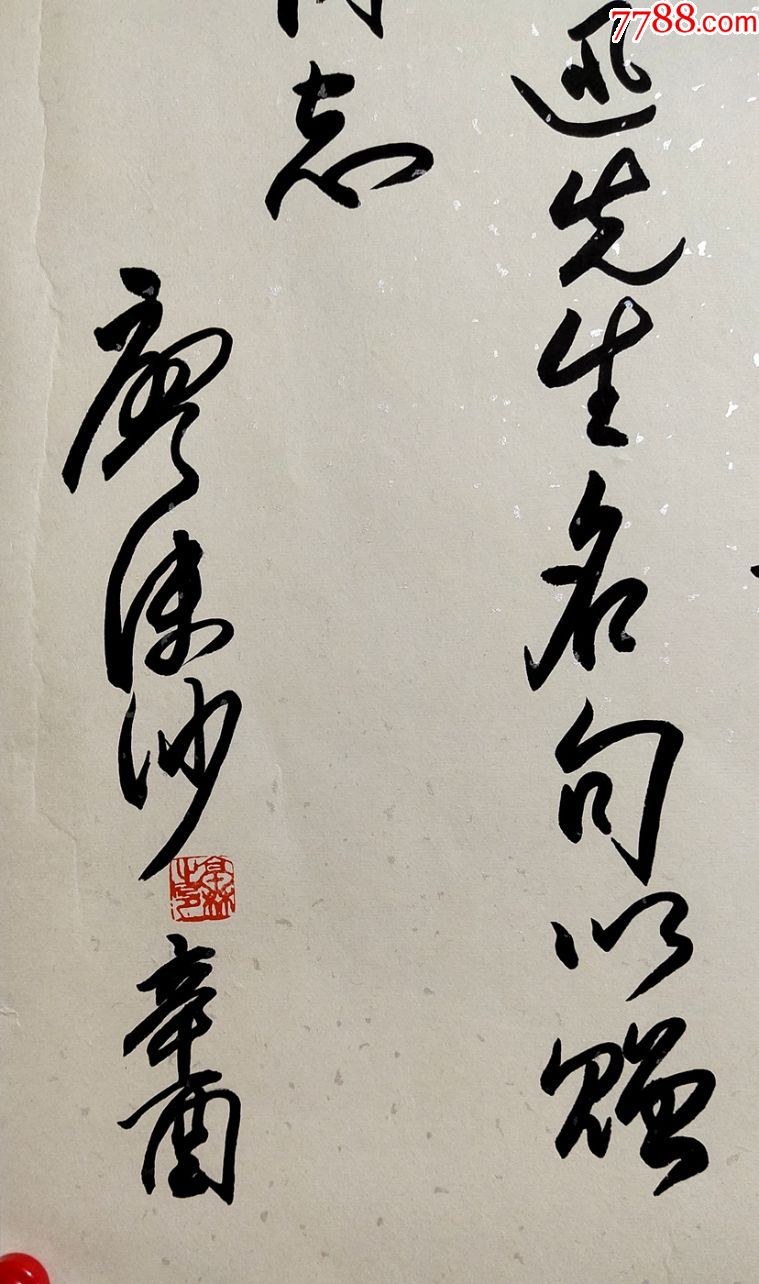 7788.com
迅先生名句以赠
同志
廖沫沙
辛酉